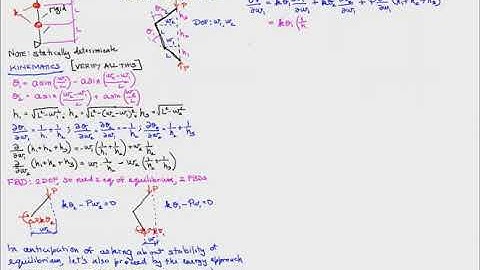 rigid
L
P
DOF: w₁, w₂
NOTE: statically determinate
KINEMATICS [VERIFY ALL THIS]
θ₁ = asin(w₁/L) - asin((w₂-w₁)/L)
θ₂ = asin((w₂-w₁)/L) + asin(w₂/L)
h₁ = √(L²-w₁²), h₂ = √(L²-(w₂-w₁)²), h₃ = √(L²-w₂²)
∂θ₁/∂w₁ = 1/h₁ + 1/h₂ ; ∂θ₁/∂w₂ = ∂θ₂/∂w₁ = -1/h₂ ; ∂θ₂/∂w₂ = 1/h₂ + 1/h₃
∂/∂w₁ (h₁+h₂+h₃) = -w₁(1/h₁ + 1/h₂) + w₂ 1/h₂
∂/∂w₂ (h₁+h₂+h₃) = w₁ 1/h₂ - w₂(1/h₂ + 1/h₃)
FBD: 2 DOF, so need 2 eq of equilibrium, 2 FBDs
P
kθ₂ - Pw₂ = 0
kθ₂
w₂
P
kθ₁ - Pw₁ = 0
kθ₁
w₁
In anticipation of asking about stability of
equilibrium, let's also proceed by the energy approach
= kθ₁(1/h